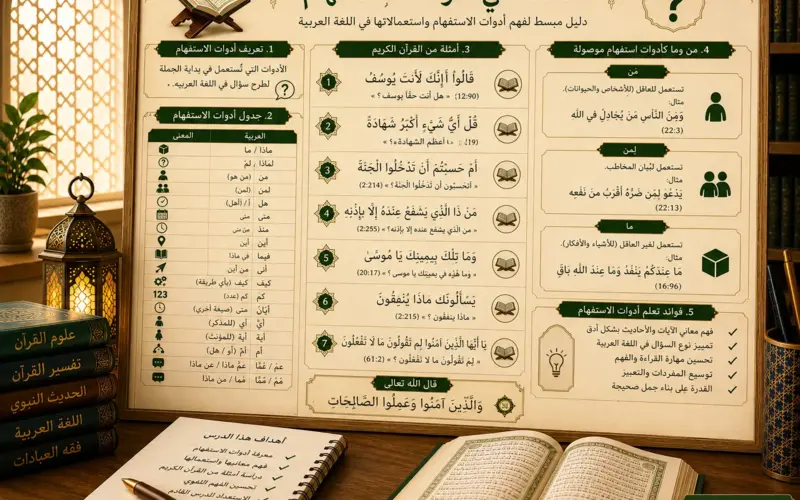 دليل مبسط لفهم أدوات الاستفهام واستعمالاتها في اللغة العربية
1. تعريف أدوات الاستفهام
الأدوات التي تُستعمل في بداية الجملة
لطرح سؤال في اللغة العربية.
2. جدول أدوات الاستفهام
العربية المعنى
ماذا / ما
لماذا / لِمَ
من (من هو)
لمن (لمن)
هل أ/ (أهل)
متى متى
منذ من متى
أين أين
فيما في ماذا
أنى من أين
كيف كيف (بأي طريقة)
كم كم (عدد) 123
أيّان متى (صيغة أخرى)
أيّ أي (للمذكر)
أية أية (للمؤنث)
أم أمْ (أو / هل)
عمّ / عمّا عمّ ماذا / عن ماذا
مّمّ / مّمّا مّما / من ماذا
3. أمثلة من القرآن الكريم
1 قَالُوا أَإِنَّكَ لَأَنتَ يُوسُفُ
« هل أنت حقًا يوسف ؟ » (12:90)
2 قُلْ أَيُّ شَيْءٍ أَكْبَرُ شَهَادَةً
أعظم الشهادة؟ »
3 أَمْ حَسِبْتُمْ أَن تَدْخُلُوا الْجَنَّةَ
« أتحسبون أن تدخلوا الجنة؟ » (2:214)
4 مَن ذَا الَّذِي يَشْفَعُ عِندَهُ إِلَّا بِإِذْنِهِ
« من الذي يشفع عنده إلا بإذنه؟ » (2:255)
5 وَمَا تِلْكَ بِيَمِينِكَ يَا مُوسَىٰ
« وما هذه في يمينك يا موسى ؟ » (20:17)
6 يَسْأَلُونَكَ مَاذَا يُنفِقُونَ
« ماذا ينفقون ؟ » (2:215)
7 يَا أَيُّهَا الَّذِينَ آمَنُوا لِمَ تَقُولُونَ مَا لَا تَفْعَلُونَ
« لِمَ تقولون ما لا تفعلون ؟ » (61:2)
قال الله تعالى
وَالَّذِينَ آمَنُوا وَعَمِلُوا الصَّالِحَاتِ
4. من وما كأدوات استفهام موصولة
مَن
تستعمل للعاقل (للأشخاص والحيوانات).
مثال:
وَمِنَ النَّاسِ مَن يُجَادِلُ في الله
(22:3)
لِمن
تستعمل لبيان المخاطب.
مثال:
يَدْعُو لِمَن ضَرُّهُ أَقْرَبُ مِن نَفْعِهِ
(22:13)
ما
تستعمل لغير العاقل (للأشياء والأفكار).
مثال:
مَا عِندَكُمْ يَنفَدُ وَمَا عِندَ اللهِ بَاقٍ
(16:96)
5. فوائد تعلم أدوات الاستفهام
فهم معاني الآيات والأحاديث بشكل أدق
تمييز نوع السؤال في اللغة العربية
تحسين مهارة القراءة والفهم
توسيع المفردات والتعبير
القدرة على بناء جمل صحيحة
علوم القرآن
تفسير القرآن
الحديث النبوي
اللغة العربية
فقه العبادات
أهداف هذا الدرس
معرفة أدوات الاستفهام
فهم معانيها واستعمالها
دراسة أمثلة من القرآن الكريم
تحسين الفهم اللغوي
الاستعداد للدرس القادم